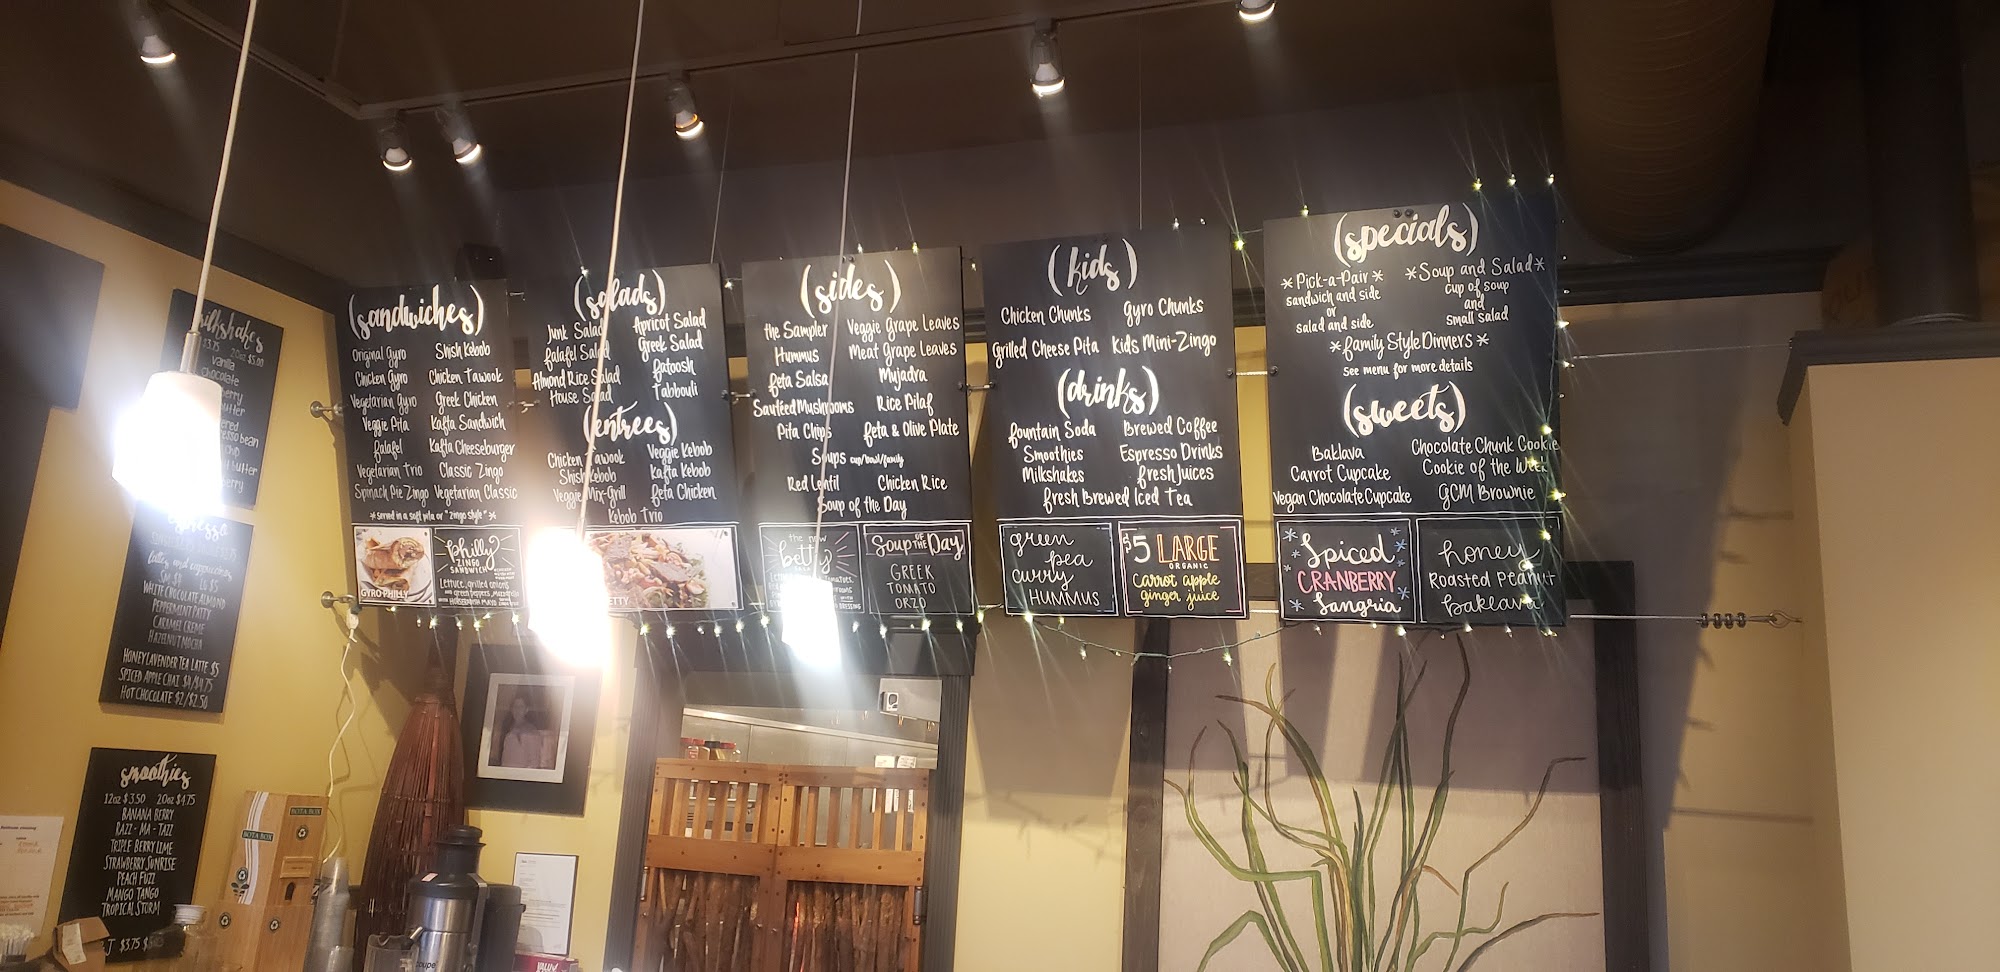 milkshakes
$3.75 20oz $5.00
vanilla
chocolate
espresso
lattes and cappuccinos
SM $4 LG $5
WHITE CHOCOLATE ALMOND
PEPPERMINT PATTY
CARAMEL CREME
HAZELNUT MOCHA
HONEY LAVENDER TEA LATTE $5
SPICED APPLE CHAI $4/$4.75
HOT CHOCOLATE $2/$2.50
smoothies
12oz $3.50 20oz $4.75
BANANA BERRY
RAZZ-MA-TAZZ
TRIPLE BERRY LIME
STRAWBERRY SUNRISE
PEACH FUZZ
MANGO TANGO
TROPICAL STORM
$3.75
(sandwiches)
Original Gyro Shish Kebob
Chicken Gyro Chicken Tawook
Vegetarian Gyro Greek Chicken
Veggie Pita Kafta Sandwich
Falafel Kafta Cheeseburger
Vegetarian Trio Classic Zingo
Spinach Pie Zingo Vegetarian Classic
*served in a soft pita or "zingo style"*
GYRO PHILLY
philly
ZINGO
SANDWICH
Lettuce, grilled onions
and green peppers, mozzarella
(salads)
Junk Salad Apricot Salad
Falafel Salad Greek Salad
Almond Rice Salad Fatoosh
House Salad Tabbouli
(entrees)
Chicken Tawook Veggie Kebob
Shish Kebob Kafta Kebob
Veggie Mix-Grill Feta Chicken
Kebob Trio
(sides)
the Sampler Veggie Grape Leaves
Hummus Meat Grape Leaves
Feta Salsa Mujadra
Sautéed Mushrooms Rice Pilaf
Pita Chips Feta & Olive Plate
Soups cup/bowl/family
Red Lentil Chicken Rice
Soup of the Day
the new
betty
Soup OF THE Day
GREEK
TOMATO
ORZO
(kids)
Chicken Chunks Gyro Chunks
Grilled Cheese Pita Kids Mini-Zingo
(drinks)
Fountain Soda Brewed Coffee
Smoothies Espresso Drinks
Milkshakes Fresh Juices
Fresh Brewed Iced Tea
green
pea
curry
HUMMUS
$5 LARGE
ORGANIC
carrot apple
ginger juice
(specials)
*Pick-a-Pair* *Soup and Salad*
sandwich and side cup of soup
or and
salad and side small salad
*Family Style Dinners*
see menu for more details
(sweets)
Baklava Chocolate Chunk Cookie
Carrot Cupcake Cookie of the Week
Vegan Chocolate Cupcake GCM Brownie
Spiced
CRANBERRY
Sangria
honey
Roasted Peanut
baklava
BOTA BOX
BOTA BOX